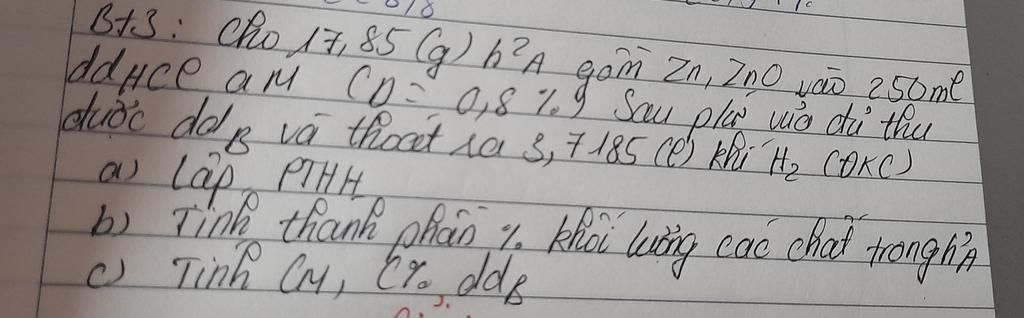 BT3: Cho 17,85 (g) h²A gồm Zn, ZnO vào 250ml
ddHCl aM (D = 0,8 %) Sau phứ vừa đủ thu
được ddB và thoát ra 3,7185 (l) khí H₂ (ĐKC)
a) Lập PTHH
b) Tính thành phần % khối lượng các chất trong h²A
c) Tính CM, C% ddB